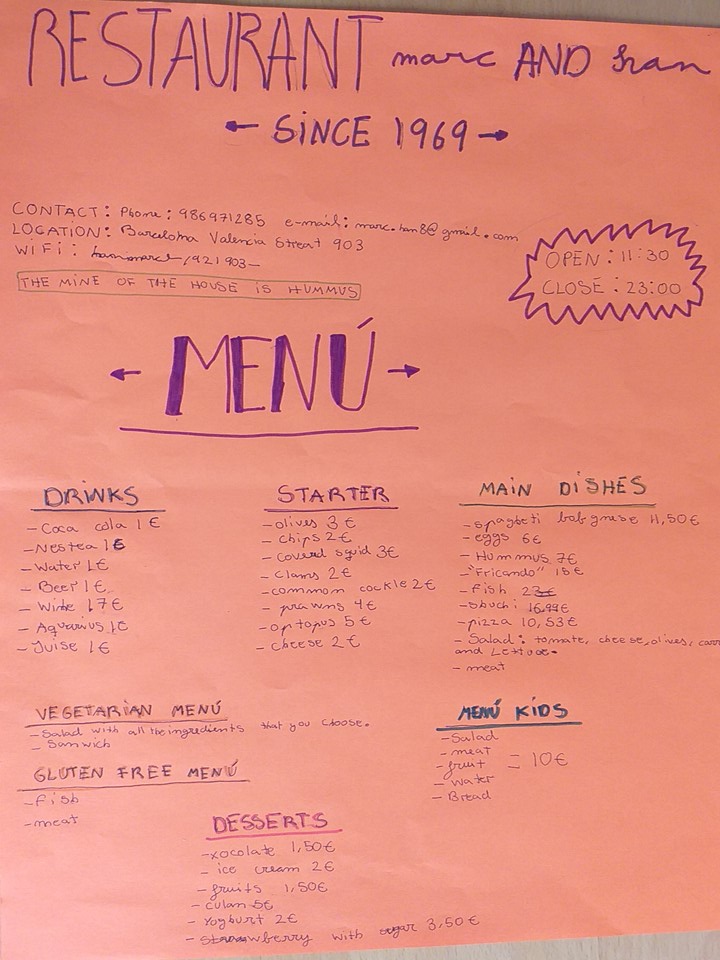 RESTAURANT marc AND fran
← SINCE 1969 →
CONTACT: Phone: 986971285 e-mail: marc.tan8@gmail.com
LOCATION: Barcelona Valencia Streat 903
WIFI: /921903-
THE MINE OF THE HOUSE IS HUMMUS
OPEN: 11:30
CLOSE: 23:00
← MENÚ →
DRINKS
- Coca cola 1€
- Nestea 1€
- Water 1€
- Beer 1€
- Wine 17€
- Aquarius 1€
- Juise 1€
STARTER
- olives 3€
- Chips 2€
- Coverd squid 3€
- Clams 2€
- common cockle 2€
- prawns 4€
- optopus 5€
- cheese 2€
MAIN DISHES
- spagheti bolognese 11,50€
- eggs 6€
- Hummus 7€
- "Fricando" 15€
- Fish
- 16,99€
- pizza 10,53€
- Salad: tomate, cheese, olives,
and Lettuce.
- meat
VEGETARIAN MENÚ
- Salad with all the ingredients that you choose.
- Sanwich
GLUTEN FREE MENÚ
- Fish
- meat
MENÚ KIDS
- Salad
- meat
- fruit = 10€
- Water
- Bread
DESSERTS
- xocolate 1,50€
- ice cream 2€
- fruits 1,50€
- culan 5€
- Yoghurt 2€
- strawberry with sugar 3,50€